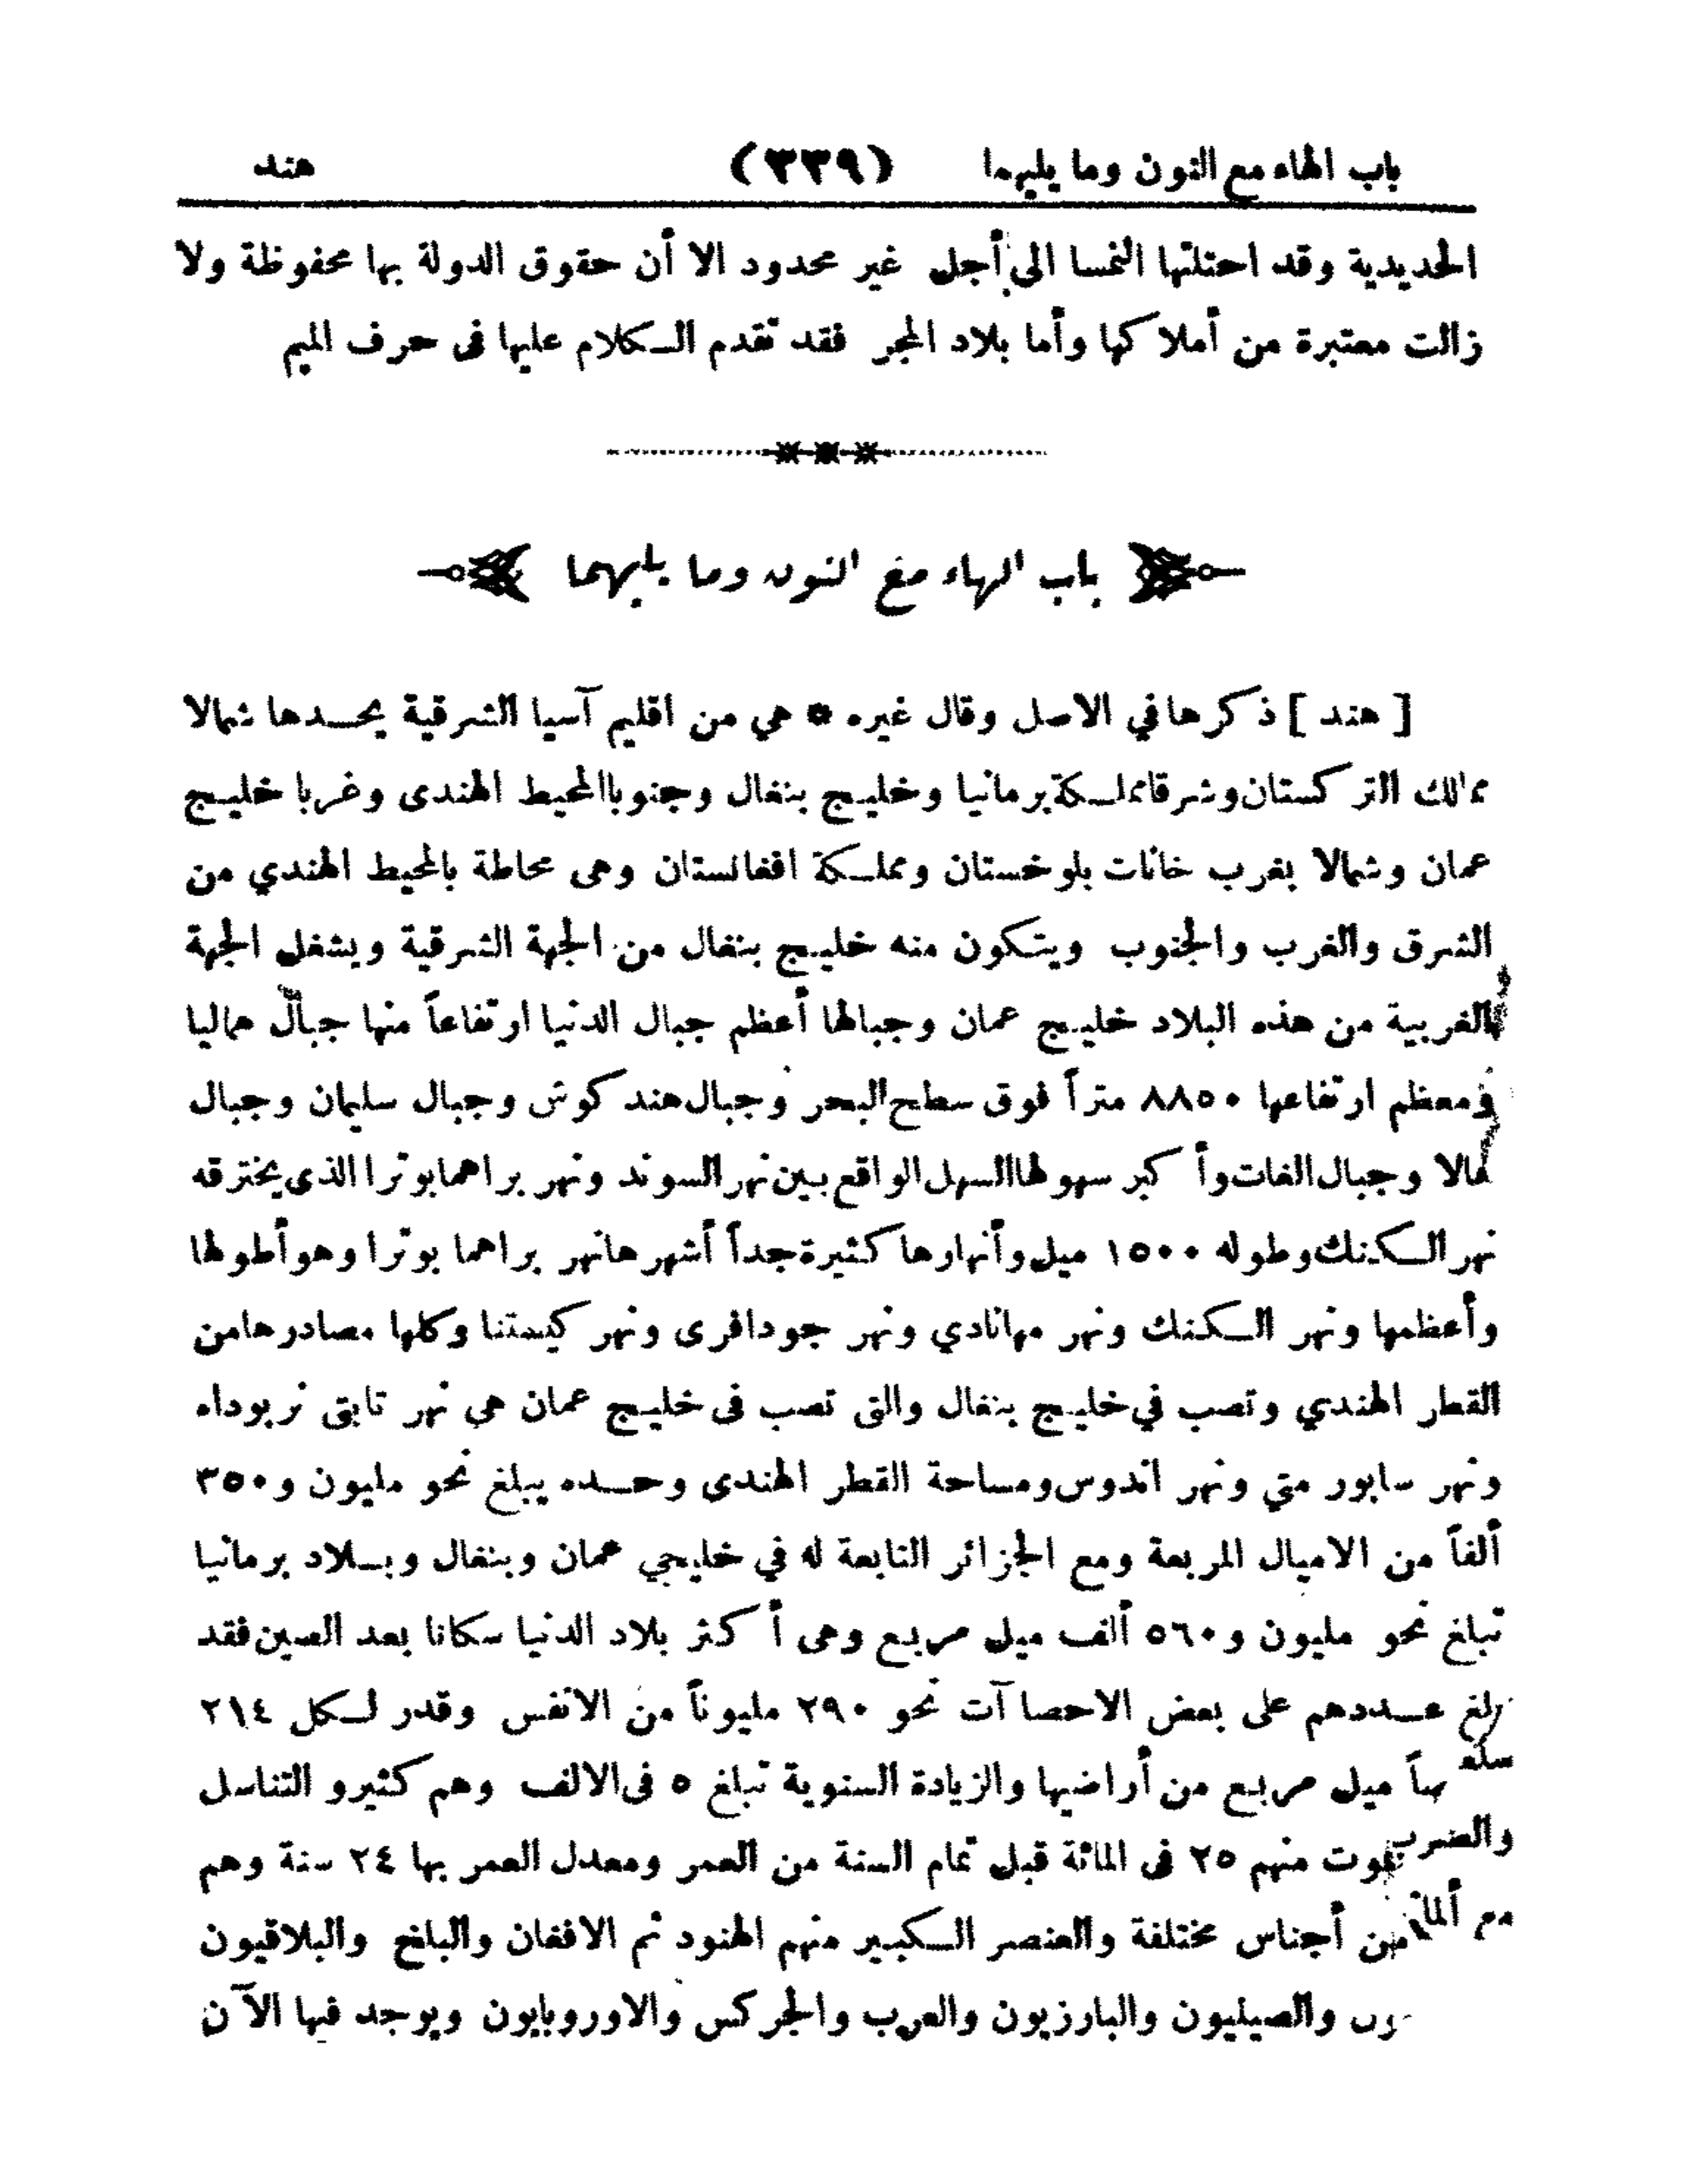 باب الهاء مع النون وما يليهما (٣٣٩) هند
الحديدية وقد احتلتها النمسا الى أجل غير محدود الا أن حقوق الدولة بها محفوظة ولا
زالت معتبرة من أملاكها وأما بلاد المجر فقد تقدم الكلام عليها فى حرف الميم
باب الهاء مع النون وما يليهما
[ هند ] ذكرها في الاصل وقال غيره * هي من اقليم آسيا الشرقية يحدها شمالا
ممالك التركستان وشرقا مملكة برمانيا وخليج بنغال وجنوبا المحيط الهندى وغربا خليج
عمان وشمالا بغرب خانات بلوخستان ومملكة افغانستان وهى محاطة بالمحيط الهندي من
الشرق والغرب والجنوب ويتكون منه خليج بنغال من الجهة الشرقية ويشغل الجهة
الغربية من هذه البلاد خليج عمان وجبالها أعظم جبال الدنيا ارتفاعاً منها جبال هماليا
ومعظم ارتفاعها ٨٨٥٠ متراً فوق سطح البحر وجبال هند كوش وجبال سليمان وجبال
مالا وجبال الغات وأكبر سهولها السهل الواقع بين نهر السوند ونهر براهمابوترا الذى يخترقه
نهر الكنك وطوله ١٥٠٠ ميل وأنهارها كثيرة جداً أشهرها نهر براهما بوترا وهو أطولها
وأعظمها ونهر الكنك ونهر مهانادي ونهر جودافرى ونهر كيستنا وكلها مصادرها من
القطر الهندي وتصب في خليج بنغال والتى تصب فى خليج عمان هي نهر تابتى نربوداه
ونهر سابور متي ونهر اندوس ومساحة القطر الهندى وحده يبلغ نحو مليون و٣٥٠
ألفاً من الاميال المربعة ومع الجزائر التابعة له في خليجي عمان وبنغال وبلاد برمانيا
تبلغ نحو مليون و٥٦٠ ألف ميل مربع وهى أكثر بلاد الدنيا سكانا بعد الصين فقد
عددهم على بعض الاحصاآت نحو ٢٩٠ مليوناً من الانفس وقدر لكل ٢١٤
ميل مربع من أراضيها والزيادة السنوية تبلغ ٥ فى الالف وهم كثيرو التناسل
منهم ٢٥ فى المائة قبل تمام السنة من العمر ومعدل العمر بها ٢٤ سنة وهم
من أجناس مختلفة والعنصر الكبير منهم الهنود ثم الافغان والبلغ والبلاقيون
والصينيون والبارزيون والعرب والجركس والاوروبايون ويوجد فيها الآن